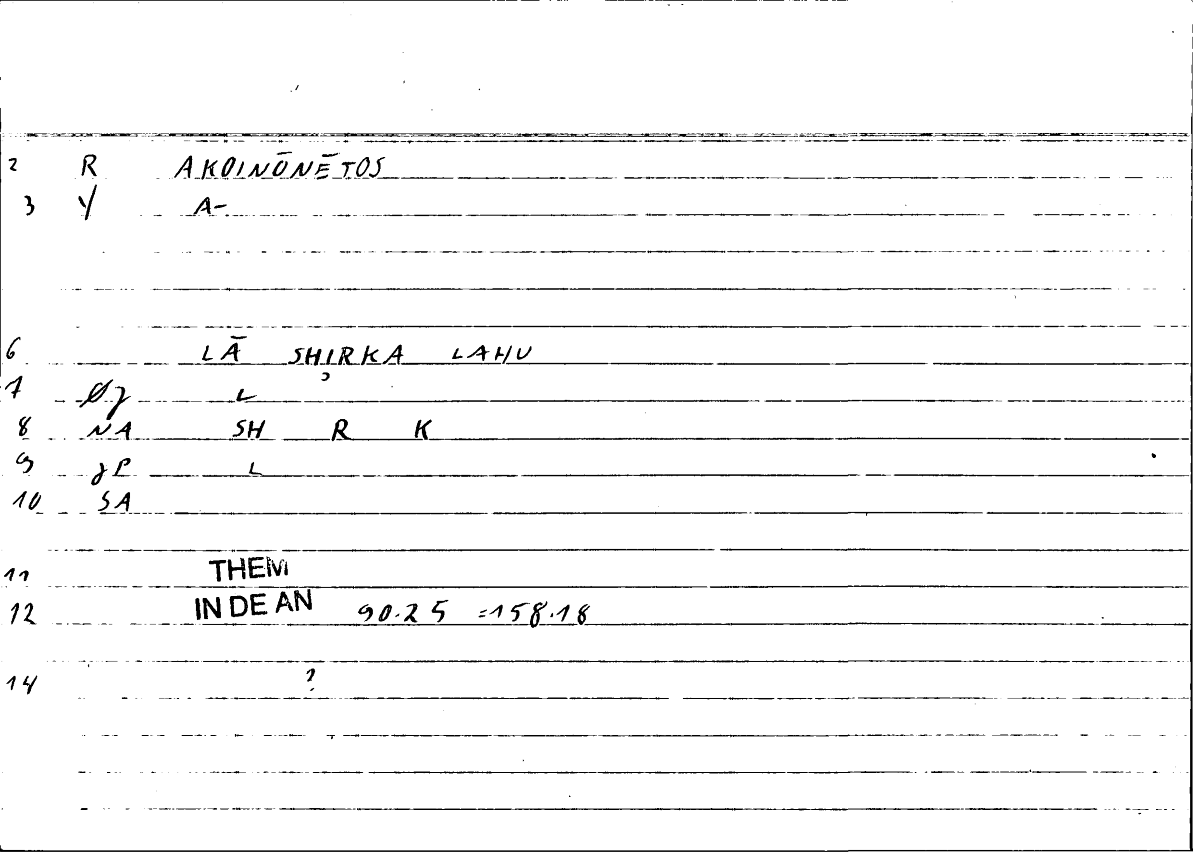 2 R AKOINŌNĒTOS
3 Y A-
6 LĀ SHIRKA LAHU
7 Øγ L
8 NA SH R K
9 γP L
10 SA
11 THEM
12 IN DE AN 90.25 =158.18
14 ?